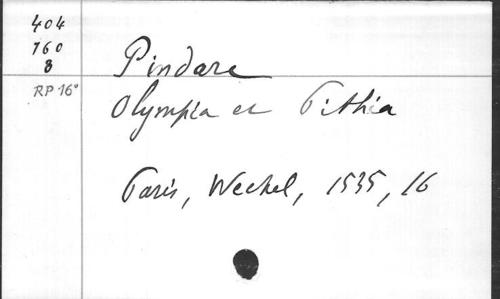 404
760
8
RP 16°
Pindare
Olympia et Pithia
Paris, Wechel, 1535, 16